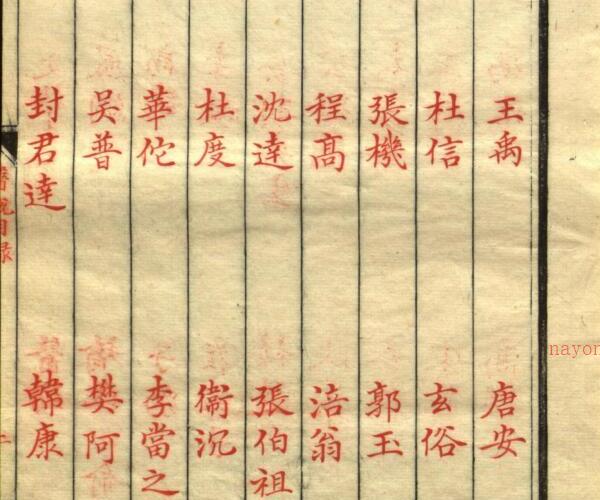 王禹 唐安
杜信 玄俗
張機 郭玉
程高 涪翁
沈達 張伯祖
杜度 衞沉
華佗 李當之
吳普 樊阿
封君達 韓康
醫說目錄
nayon